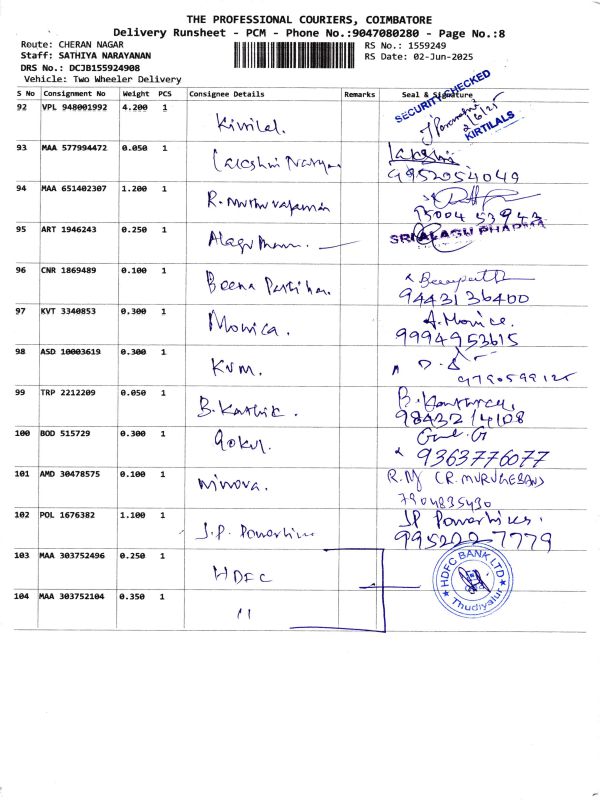 THE PROFESSIONAL COURIERS, COIMBATORE
Delivery Runsheet - PCM - Phone No.:9047080280 - Page No.:8
Route: CHERAN NAGAR
RS No.: 1559249
Staff: SATHIYA NARAYANAN
RS Date: 02-Jun-2025
DRS No.: DCJB155924908
Vehicle: Two Wheeler Delivery
S No Consignment No Weight PCS Consignee Details Remarks Seal & Signature
SECURITY CHECKED
2/6/25
KIRTILALS
92 VPL 948001992 4.200 1
93 MAA 577994472 0.050 1 Lakshmi
9952054049
94 MAA 651402307 1.200 1
95 ART 1946243 0.250 1
SRI ALAGU PHARMA
96 CNR 1869489 0.100 1 Beena
9443136400
97 KVT 3340853 0.300 1 Monica. A. Monica.
9994953615
98 ASD 10003619 0.300 1 KVM.
99 TRP 2212209 0.050 1 B. Karthik.
9843214108
100 BOD 515729 0.300 1 Gokul.
9363776077
101 AMD 30478575 0.100 1 R.M (R. MURUGESAN)
7904835430
102 POL 1676382 1.100 1 J.P. JP
9952227779
103 MAA 303752496 0.250 1 HDFC
HDFC BANK LTD
Thudiyalur
104 MAA 303752104 0.350 1 11